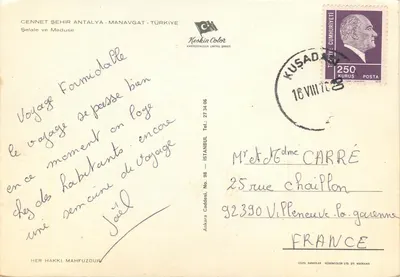 CENNET ŞEHİR ANTALYA - MANAVGAT - TÜRKİYE
Şelale ve Meduse
Keskin Color
Voyage Formidable
le voyage se passe bien
en ce moment on loge
chez des habitants encore
une semaine de voyage
Joël
HER HAKKI MAHFUZDUR
Ankara Caddesi, No. 98 - İSTANBUL Tel.: 27 14 06
TÜRKİYE CUMHURİYETİ
250
KURUŞ POSTA
KUŞADASI
16 VIII 7
Mr et Mme CARRÉ
25 rue chaillon
92390 Villeneuve-la-garenne
FRANCE